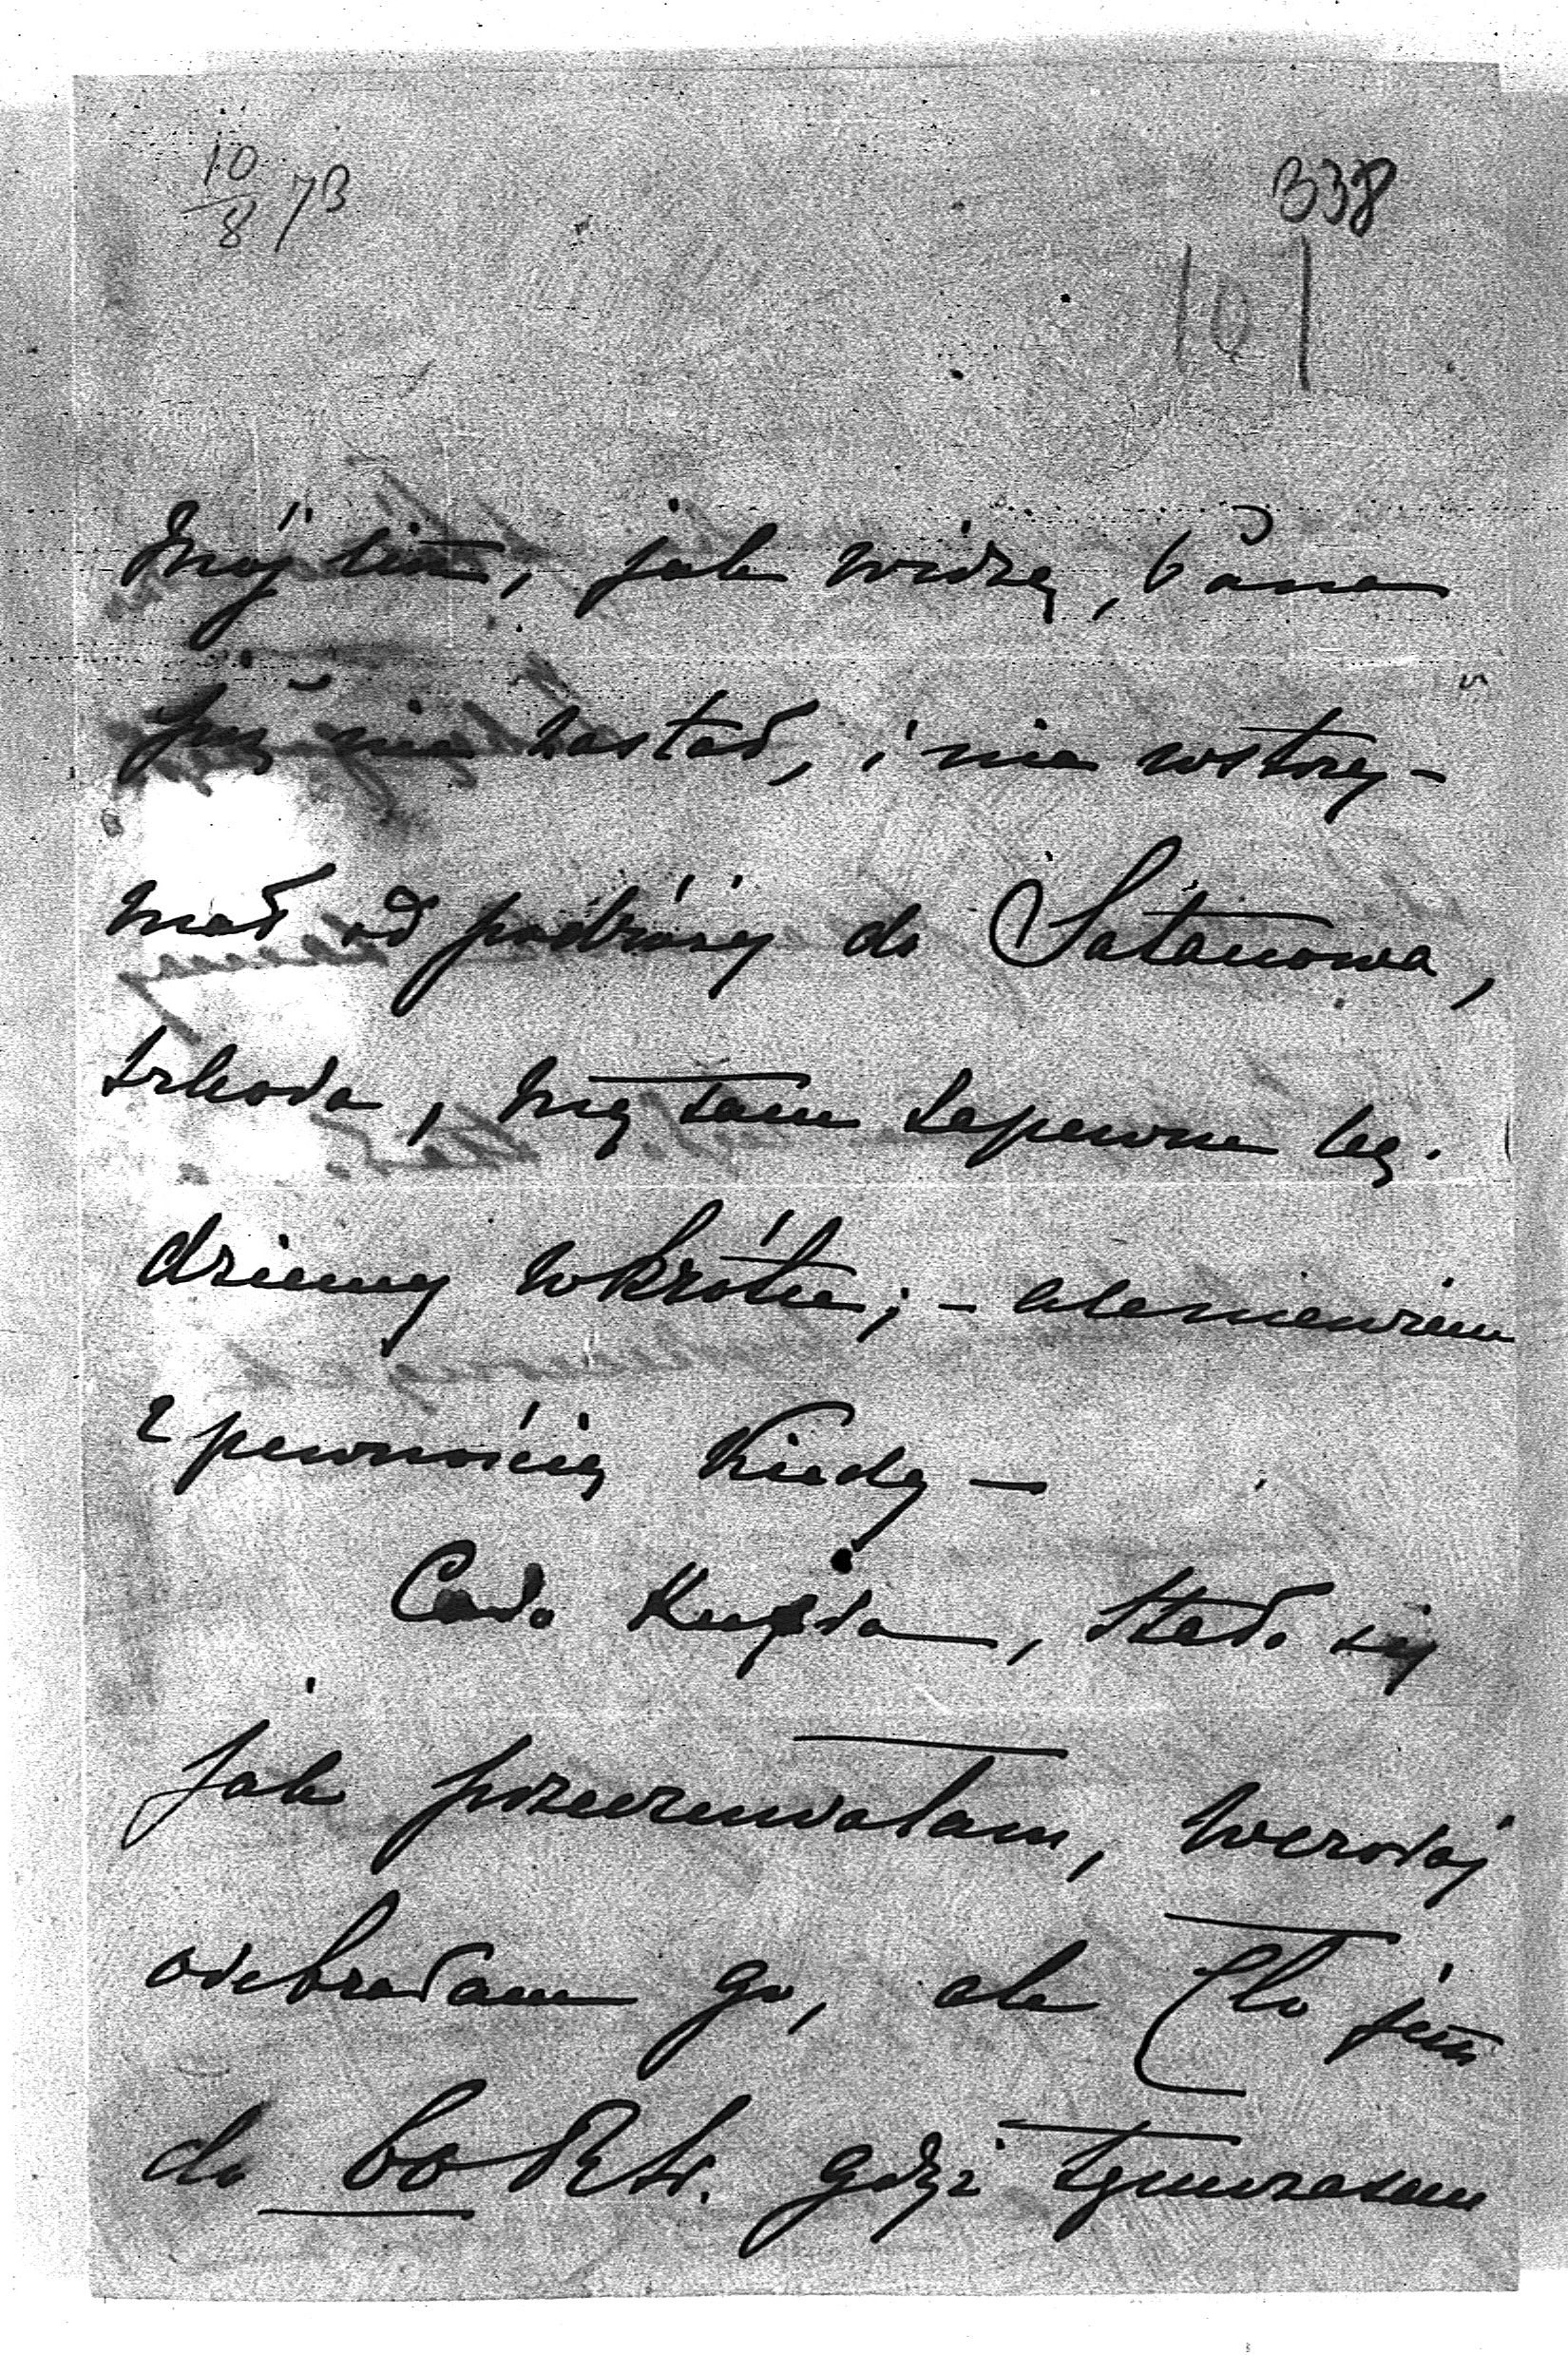 10/8 73
338
101
Mój list, jak widzę, Pana
już nie zastał, i nie wstrzy-
mał od podróży do Satanowa,
szkoda, my tam zapewne bę-
dziemy wkrótce; – ale nie wiem
z pewnością kiedy –
Co do , stało się
jak przeczuwałam, wczoraj
odebrałam go, ale Cło jest
do 60 Rb. gdyż tymczasem